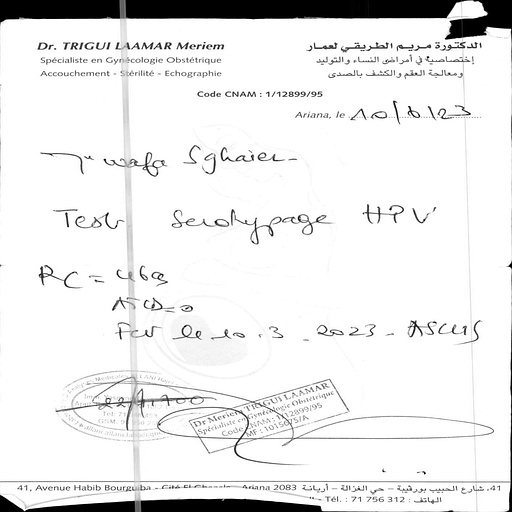 Dr. TRIGUI LAAMAR Meriem
Spécialiste en Gynécologie Obstétrique
Accouchement - Stérilité - Echographie
الدكتورة مريم الطريقي لعمار
إختصاصية في أمراض النساء والتوليد
ومعالجة العقم والكشف بالصدى
Code CNAM : 1/12899/95
Ariana, le 10/6/23
wafa Sghaier
Test Serotypage HPV
RC =
ATCD = 0
FCV le 10.3.2023 - ASCUS
Dr Meriem TRIGUI LAAMAR
Spécialiste en Gynécologie Obstétrique
Code CNAM: 1/12899/95
MF: 101505/A
41, Avenue Habib Bourguiba - Cité El Ghazela - Ariana 2083
41، شارع الحبيب بورقيبة - حي الغزالة - أريانة
Tél. : 71 756 312 : الهاتف